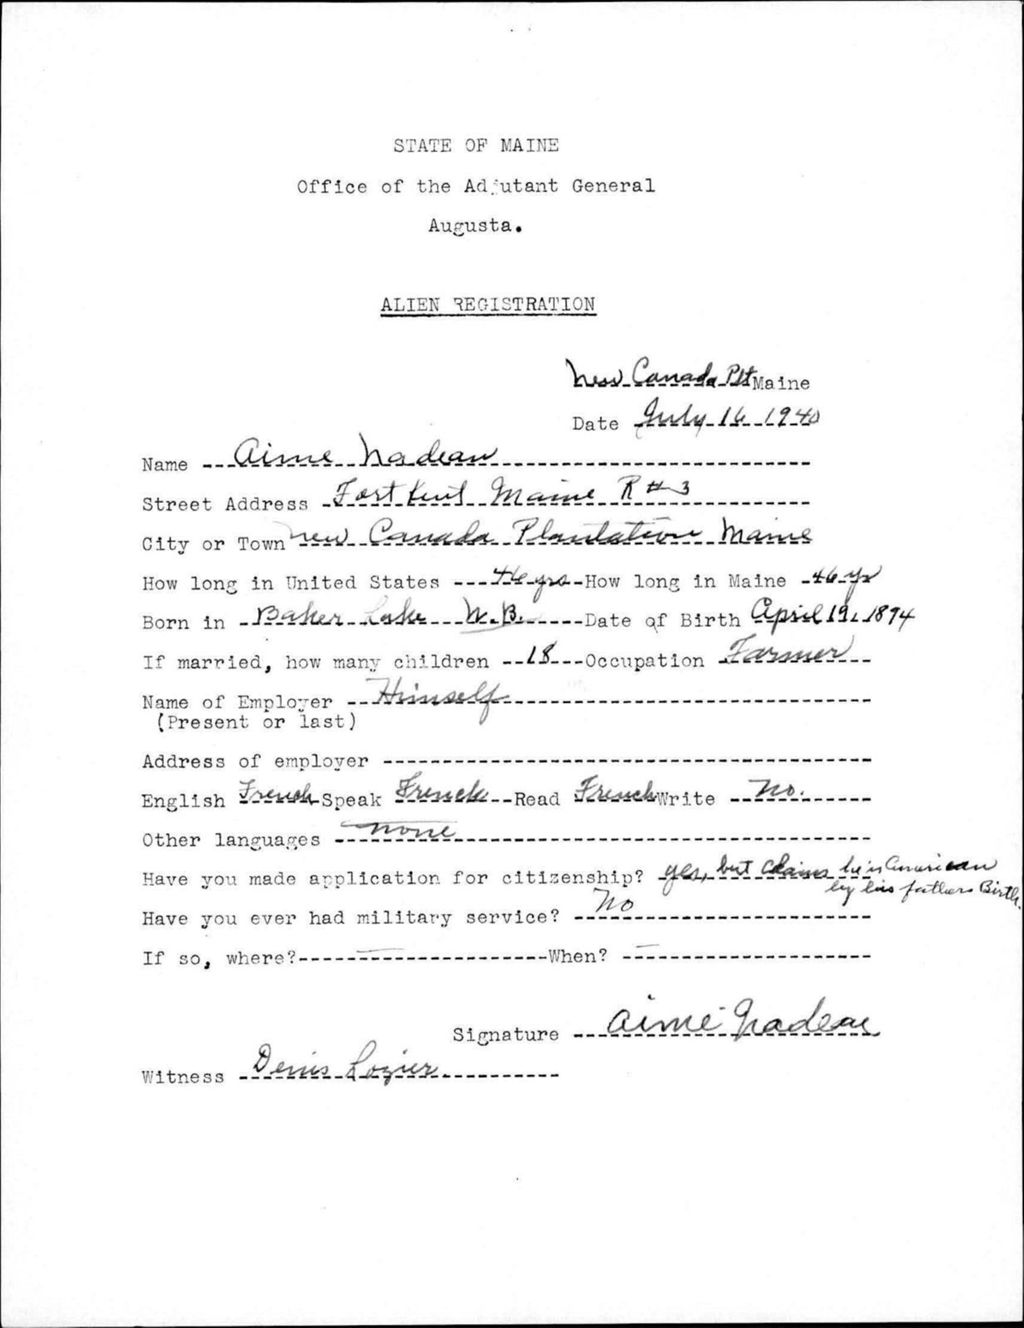 STATE OF MAINE
Office of the Adjutant General
Augusta.
ALIEN REGISTRATION
New Canada Plt Maine
Date July 16 1940
Name Aime Nadeau
Street Address Fort Kent Maine R # 3
City or Town New Canada Plantation Maine
How long in United States 46 yrs How long in Maine 46 yr
Born in Baker Lake N.B. Date of Birth April 19, 1894
If married, how many children 18 Occupation Farmer
Name of Employer Himself
(Present or last)
Address of employer
English French Speak French Read French Write No.
Other languages none
Have you made application for citizenship? yes, but claims he is American
by his fathers Birth.
Have you ever had military service? No
If so, where? When?
Signature Aimé Nadeau
Witness Denis Lozier